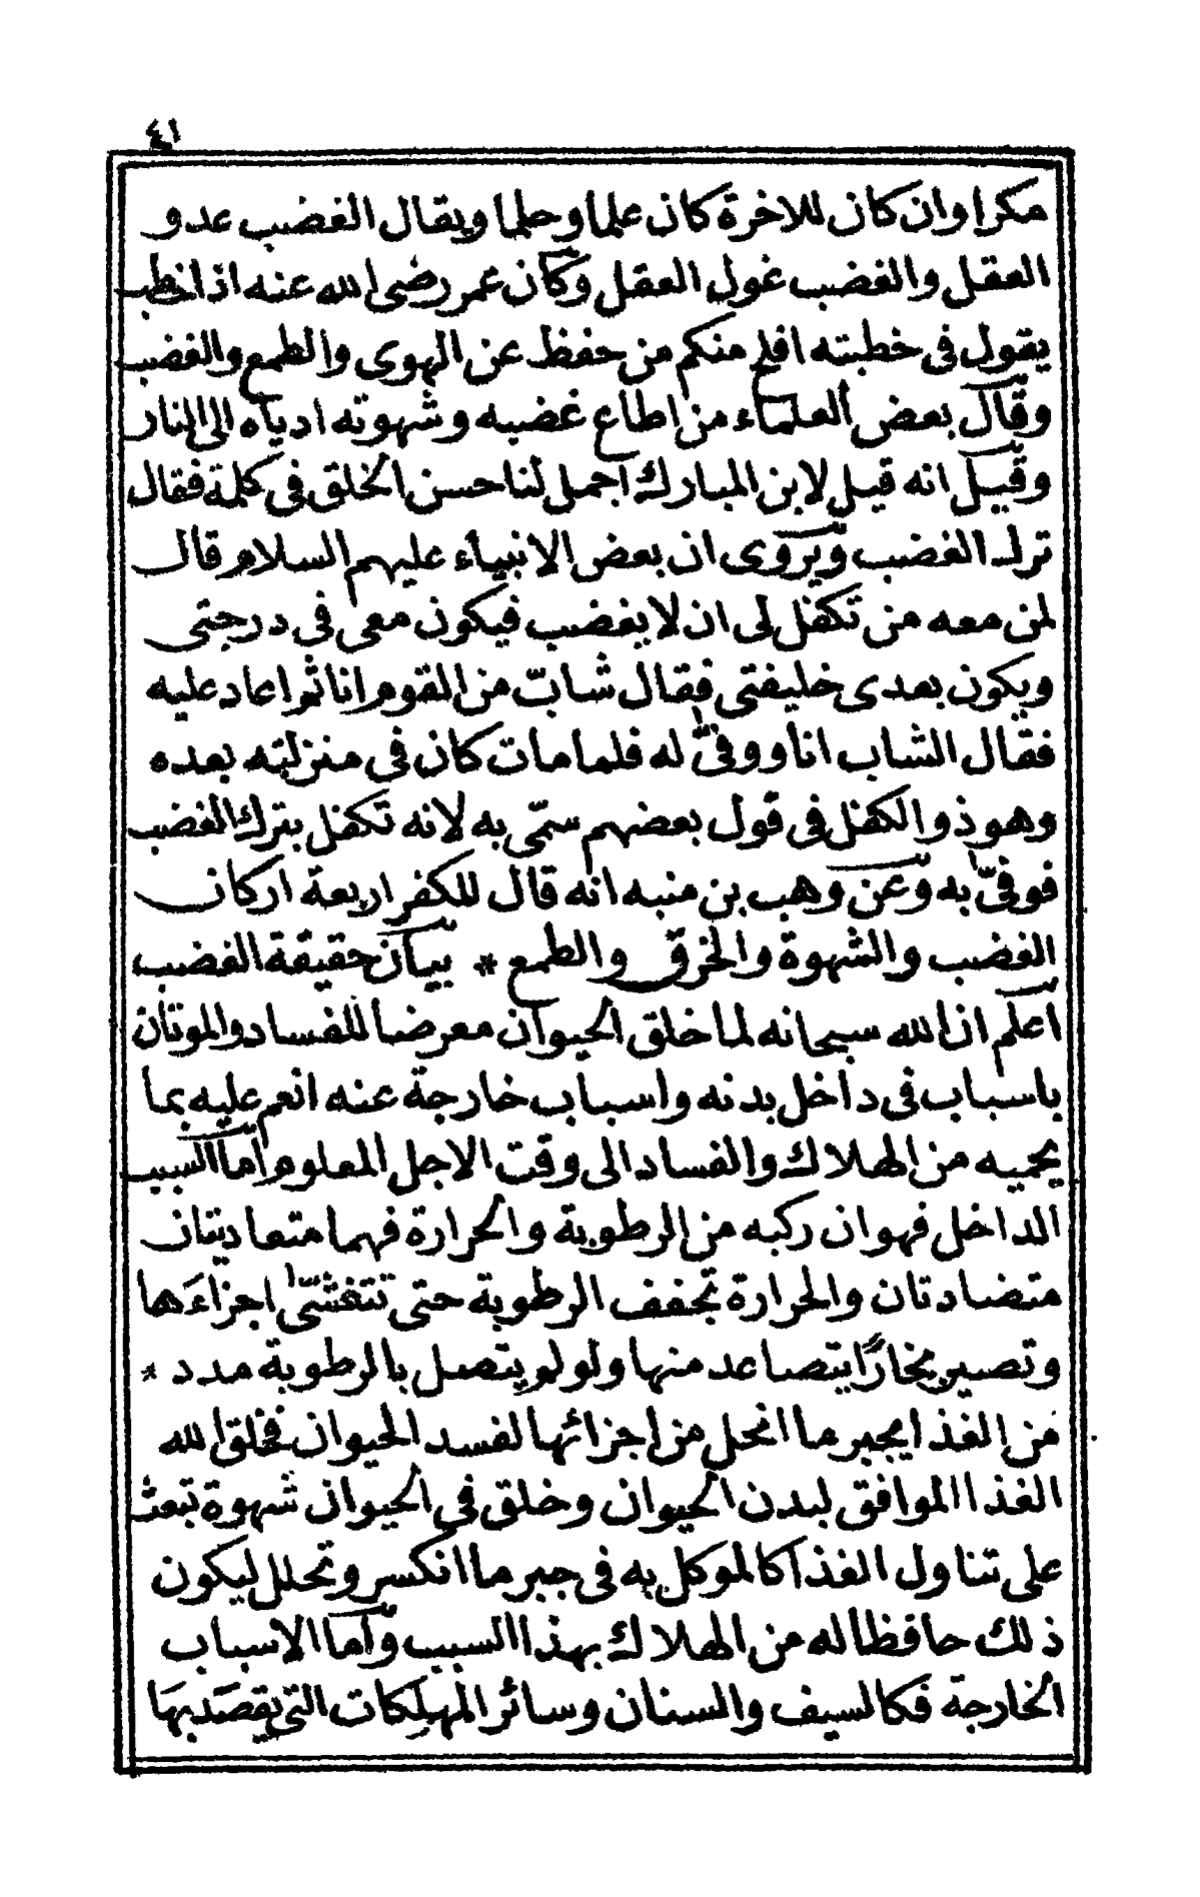 ٤١
مكرا وان كان للاخرة كان علما وحلما ويقال الغضب عدو
العقل والغضب غول العقل وكان عمر رضى الله عنه اذا خطب
يقول فى خطبته افلح منكم من حفظ عن الهوى والطمع والغضب
وقال بعض العلماء من اطاع غضبه وشهوته ادياه الى النار
وقيل انه قيل لابن المبارك اجمل لنا حسن الخلق فى كلمة فقال
ترك الغضب ويروى ان بعض الانبياء عليهم السلام قال
لمن معه من تكفل لى ان لا يغضب فيكون معى فى درجتى
ويكون بعدى خليفتى فقال شابّ من القوم انا ثم اعاد عليه
فقال الشاب انا ووفىّ له فلما مات كان فى منزلته بعده
وهو ذو الكفل فى قول بعضهم سمّى به لانه تكفل بترك الغضب
فوفىّ به وعن وهب بن منبه انه قال للكفر اربعة اركان
الغضب والشهوة والخرق والطمع * بيان حقيقة الغضب
اعلم ان الله سبحانه لما خلق الحيوان معرضا للفساد والموتان
باسباب فى داخل بدنه واسباب خارجة عنه انعم عليه بما
يحميه من الهلاك والفساد الى وقت الاجل المعلوم اما السبب
الداخل فهو ان ركبه من الرطوبة والحرارة فهما متعاديتان
متضادتان والحرارة تجفف الرطوبة حتى تتفشّى اجزاءَها
وتصير بخارًا يتصاعد منها ولو لم يتصل بالرطوبة مدد *
من الغذا يجبر ما انحل من اجزائها لفسد الحيوان فخلق الله
الغذا الموافق لبدن الحيوان وخلق فى الحيوان شهوة تبعث
على تناول الغذا كالموكل به فى جبر ما انكسر وتحلل ليكون
ذلك حافظا له من الهلاك بهذا السبب واما الاسباب
الخارجة فكالسيف والسنان وسائر المهلكات التى يقصد بها